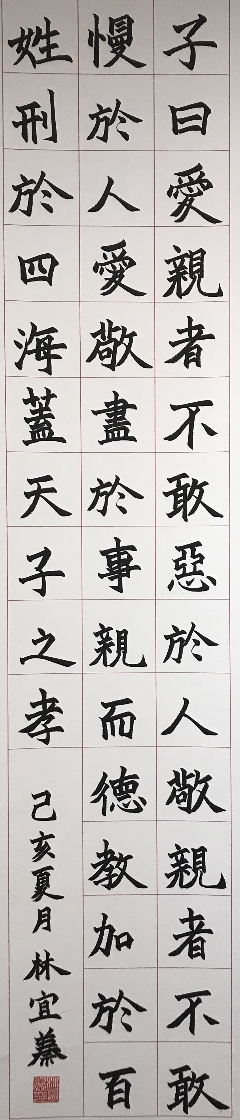 子曰愛親者不敢惡於人敬親者不敢
慢於人愛敬盡於事親而德教加於百
姓刑於四海蓋天子之孝
己亥夏月林宜蓁